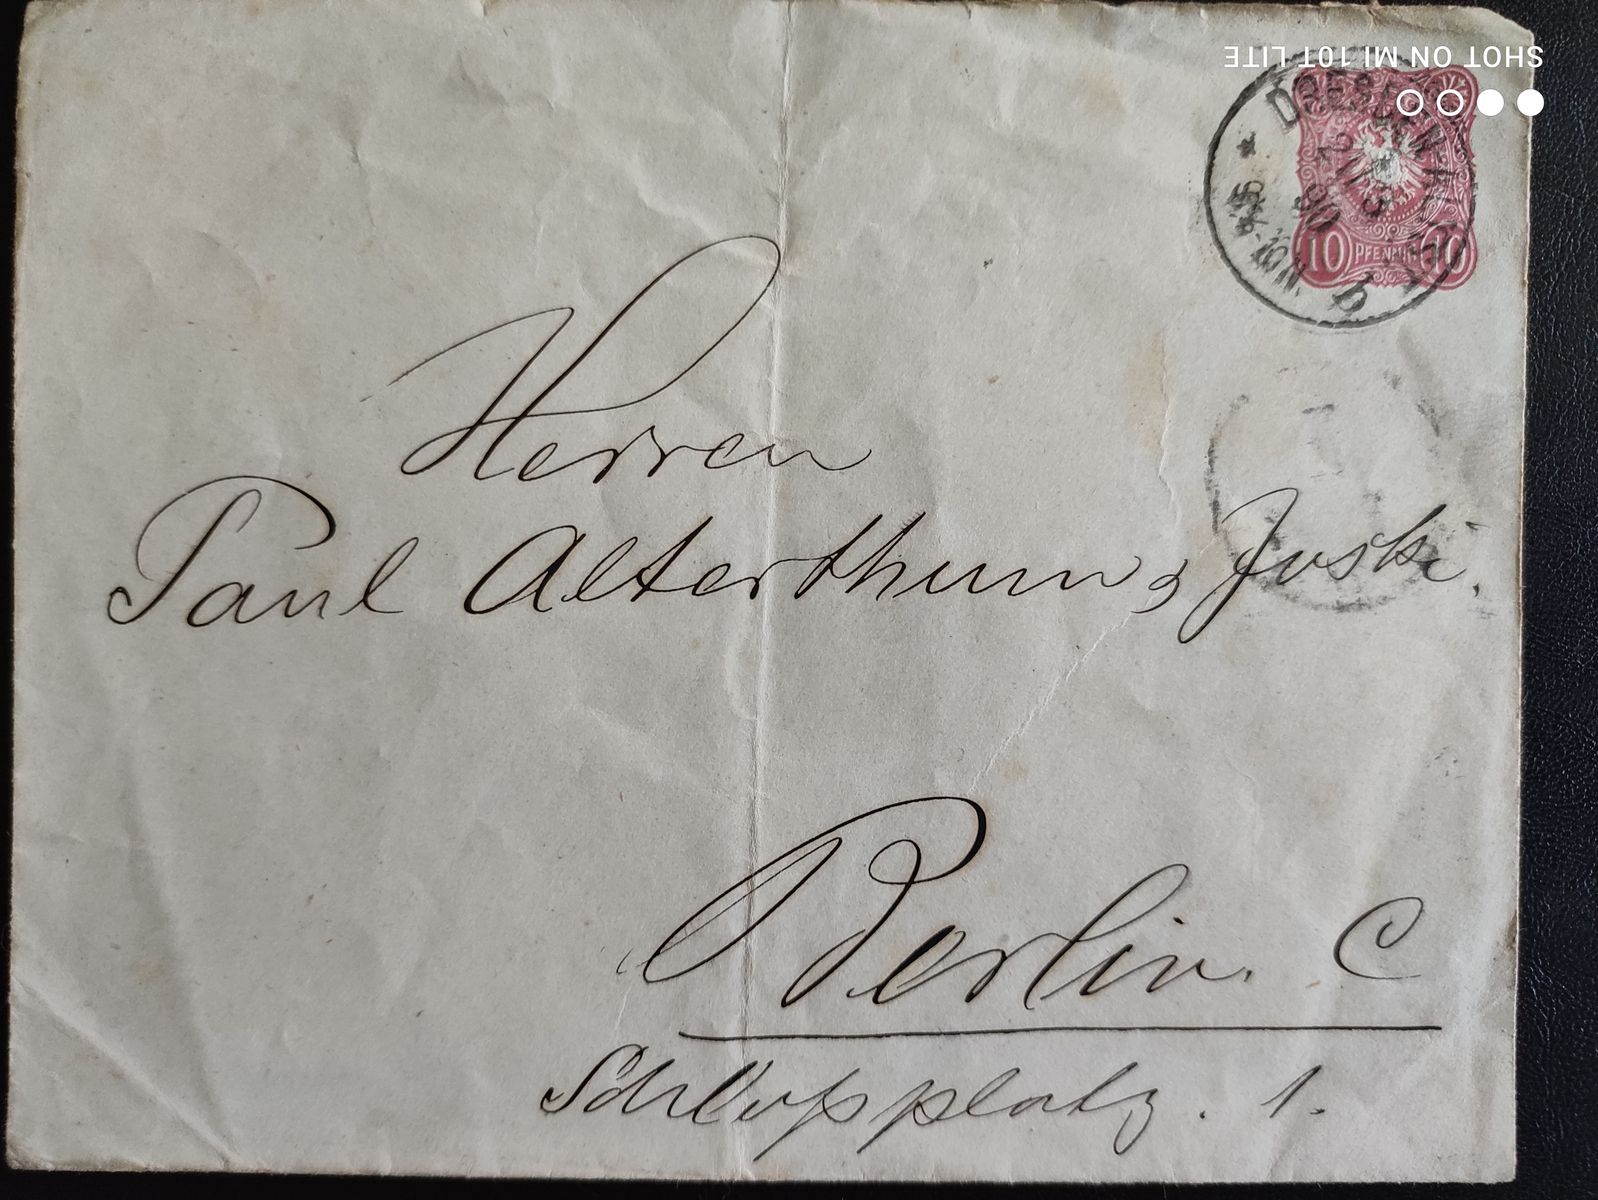 SHOT ON MI 10T LITE
DRESDEN
90
10 PFENNIG 10
b
Herren
Paul Alterthum, Joski.
Berlin. C
Schloßplatz. 1.